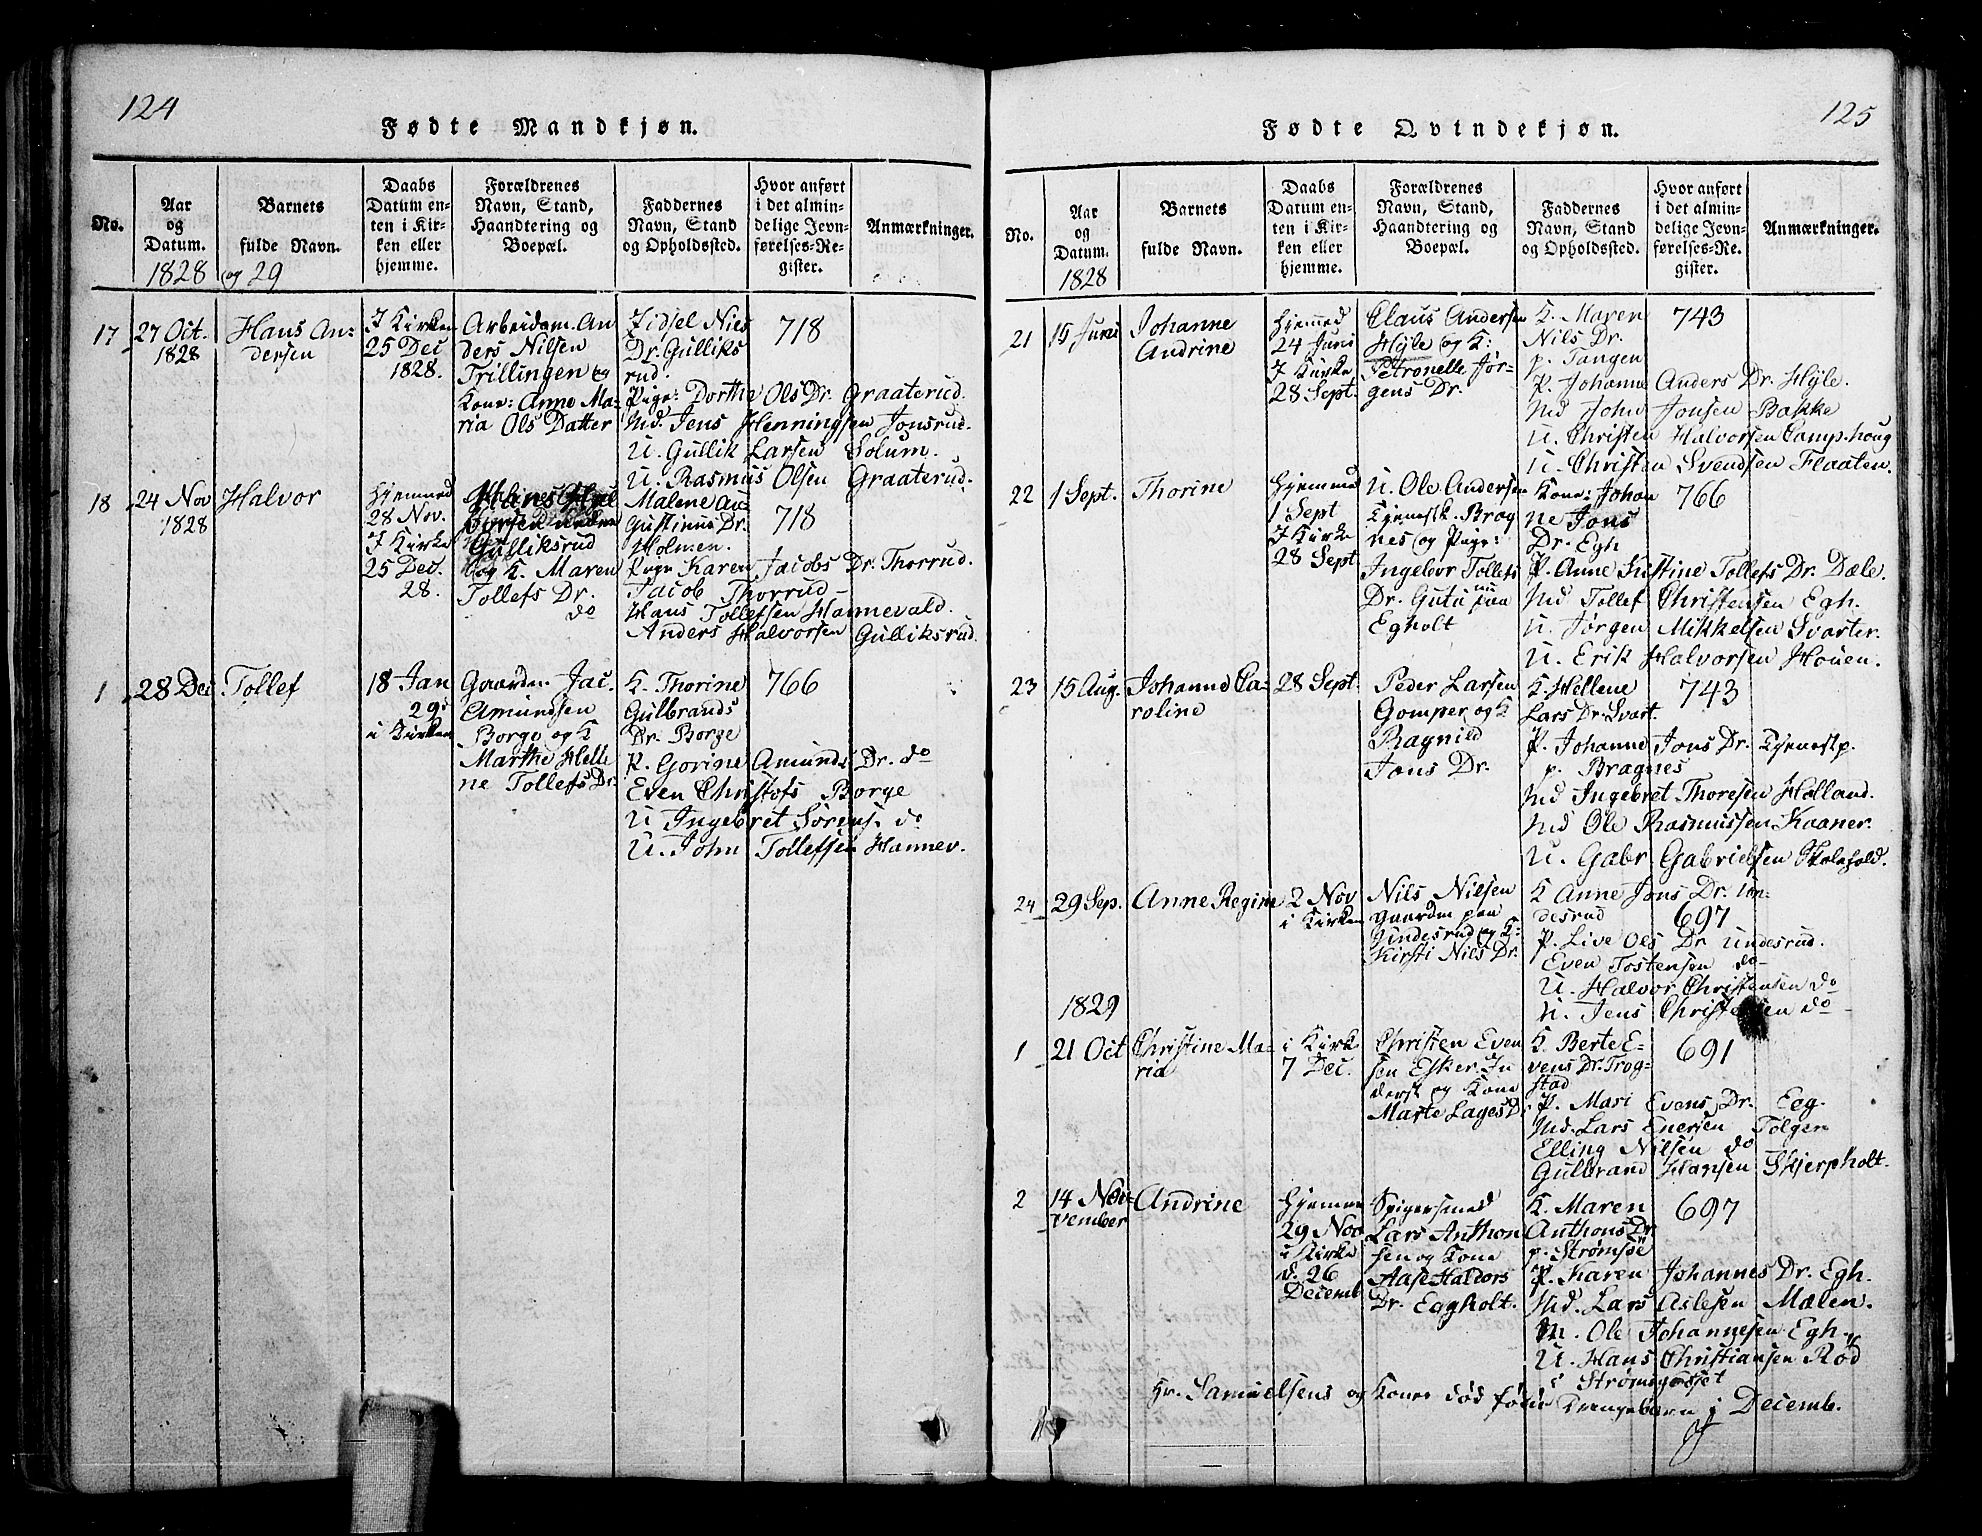 124
Fødte Mandkjøn.
No.
Aar
og
Datum.
1828 og 29
Barnets
fulde Navn.
Daabs
Datum en-
ten i Kir-
ken eller
hjemme.
Forældrenes
Navn, Stand,
Haandtering og
Boepæl.
Faddernes
Navn, Stand
og Opholdssted.
Hvor anført
i det almin-
delige Jevn-
førelses-Re-
gister.
Anmærkninger.
17
27 Oct.
1828
Hans An-
dersen
I Kirken
25 Dec
1828.
Arbeidsm. An
ders Nilsen
Trillingen og
Kone: Anne Ma-
ria Ols Datter
Zidsel Niels
Dr. Gulliks
rud.
Pige: Dorthe Ols Dr. Graaterud.
Md. Jens Henningsen Jonsrud.
U. Gullik Larsen Solum.
U. Rasmus Olsen Graaterud.
718
18
24 Nov
1828
Halvor
Hjemmed
28 Nov.
I Kirke
25 Dec.
28.
Gulliksrud
og K. Maren
Tollefs Dr.
do
Malene Au-
gustinus Dr.
Holmen.
Pige Karen Jacobs Dr. Thorrud.
Jacob Thorrud
Hans Tollefsen Hannevald.
Anders Halvorsen Gulliksrud.
718
1
28 Dec
Tollef
18 Jan
29
i Kirken
Gaardm. Jac.
Amundsen
Borge og K
Marthe Helle
ne Tollefs Dr.
K. Thorine
Gulbrands
Dr. Borge
P. Gorine Amunds Dr. do
Even Christofs Borge
U Ingebret Sørens. do
U. John Tollefsen Hannev.
766
125
Fødte Qvindekjøn.
No.
Aar
og
Datum.
1828
Barnets
fulde Navn.
Daabs
Datum en-
ten i Kir-
ken eller
hjemme.
Forældrenes
Navn, Stand,
Haandtering og
Boepæl.
Faddernes
Navn, Stand
og Opholdssted.
Hvor anført
i det almin-
delige Jevn-
førelses-Re-
gister.
Anmærkninger.
21
15 Juni
Johanne
Andrine
Hjemmed
24 Juni
I Kirke
28 Sept.
Claus Andersen
Hÿle og K:
Petronelle Jør-
gens Dr.
K. Maren
Nils Dr.
p. Tangen
P. Johanne Anders Dr. Hÿle.
Md John Jonsen Bakke
U. Christen Halvorsen Camphoug
U. Christen Svendsen Flaaten.
743
22
1 Sept.
Thorine
Hjemme
1 Sept
I Kirke
28 Sept
U. Ole Andersen
Tjenestk. Brag
nes og Pige:
Ingebor Tollefs
Dr. paa
Egholt
Kone: Johan
ne Jons
Dr. Egh
P. Anne Kistine Tollefs Dr. Dæle.
Md Tollef Christensen Egh.
U. Jørgen Mikkelsen Svarter.
U. Erik Halvorsen Houen.
766
23
15 Aug.
Johanne Ca-
roline
28 Sept.
Peder Larsen
Gomper og K
Ragnild
Jons Dr.
K. Hellene
Lars Dr. Svart.
P. Johanne Jons Dr. Tjenestp.
p. Bragnes
Md Ingebret Thoresen Holland.
Md Ole Rasmussen Kaaner.
U. Gabr. Gabrielsen Skolefold.
743
24
29 Sep.
Anne Regine
2 Nov
i Kirken
Nils Nilsen
Gaardm paa
Undesrud og K:
Kirsti Nils Dr.
K Anne Jons Dr. Un-
desrud
P. Live Ols Dr Undesrud.
Even Tostensen do
U. Halvor Christensen do
U. Jens Christensen do
697
1829
1
21 Oct
Christine Ma-
ria
i Kirk
7 Dec.
Christen Even
sen Esker In
derst og Kone
Marte Lages Dr
K. Berte E-
vens Dr. Trog-
stad
P. Mari Evens Dr. Eeg.
Md. Lars Enersen Tolger
Elling Nilsen do
Gulbrand Hansen Skjerpholt.
691
2
14 No-
vember
Andrine
Hjemme
29 Nov
i Kirke
d. 26
Decemb
Spigersmed
Lars Anthon
sen og Kone
Aase Haldors
Dr. Eggholt.
K. Maren
Anthons Dr
p. Strømsøe
P. Karen Johannes Dr. Egh.
Md. Lars Aslesen Mælen.
M. Ole Johannesen Egh.
U. Hans Christiansen Röd
i Strømsgodset
697
Hr. Samuelsens og Kones død fødte Drengebarn i Decemb.